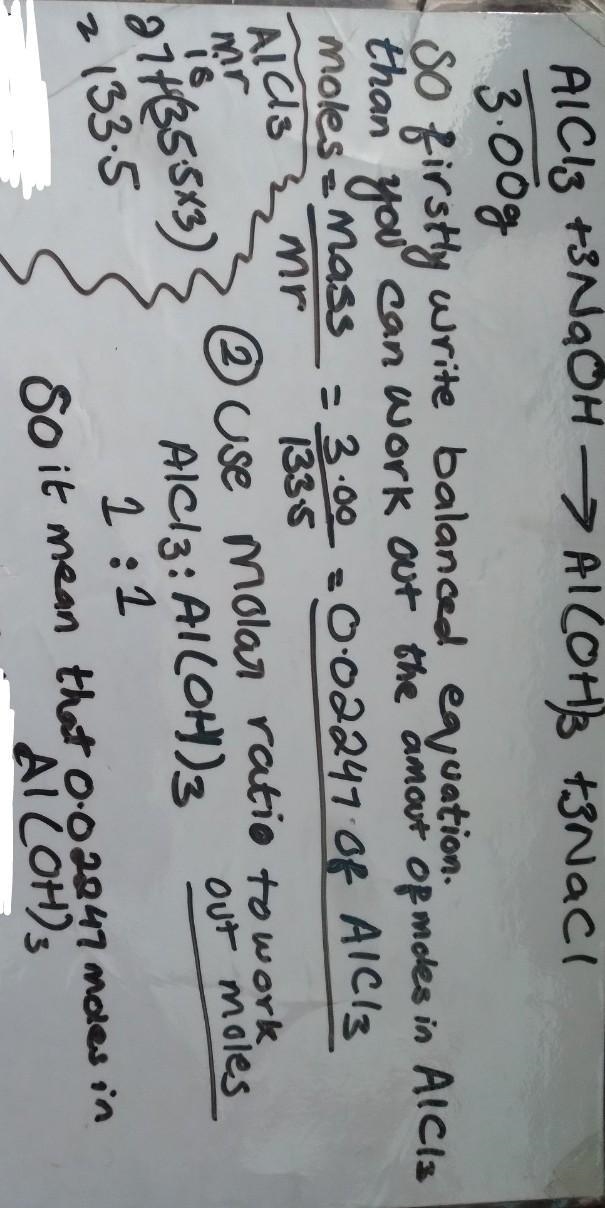 AlCl3 +3NaOH → Al(OH)3 +3NaCl
3.00g
So firstly write balanced equation.
than you can work out the amout of moles in AlCl3
moles = mass / mr = 3.00 / 133.5 = 0.02247 of AlCl3
AlCl3
mr
is
27+(35.5x3)
= 133.5
② Use Molar ratio to work
out moles
AlCl3 : Al(OH)3
1 : 1
So it mean that 0.02247 moles in
Al(OH)3